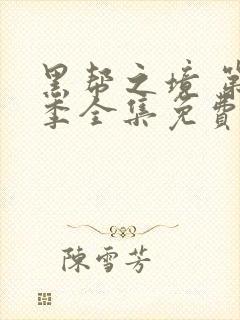 黑帮之境 第
季全集免费
陳雪芳